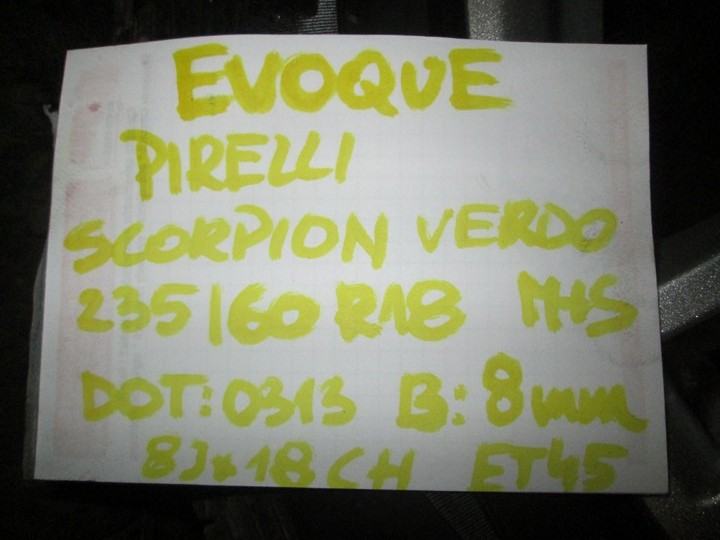 EVOQUE
PIRELLI
SCORPION VERDO
235/60 R18 M+S
DOT: 0313 B: 8mm
8Jx18CH ET45